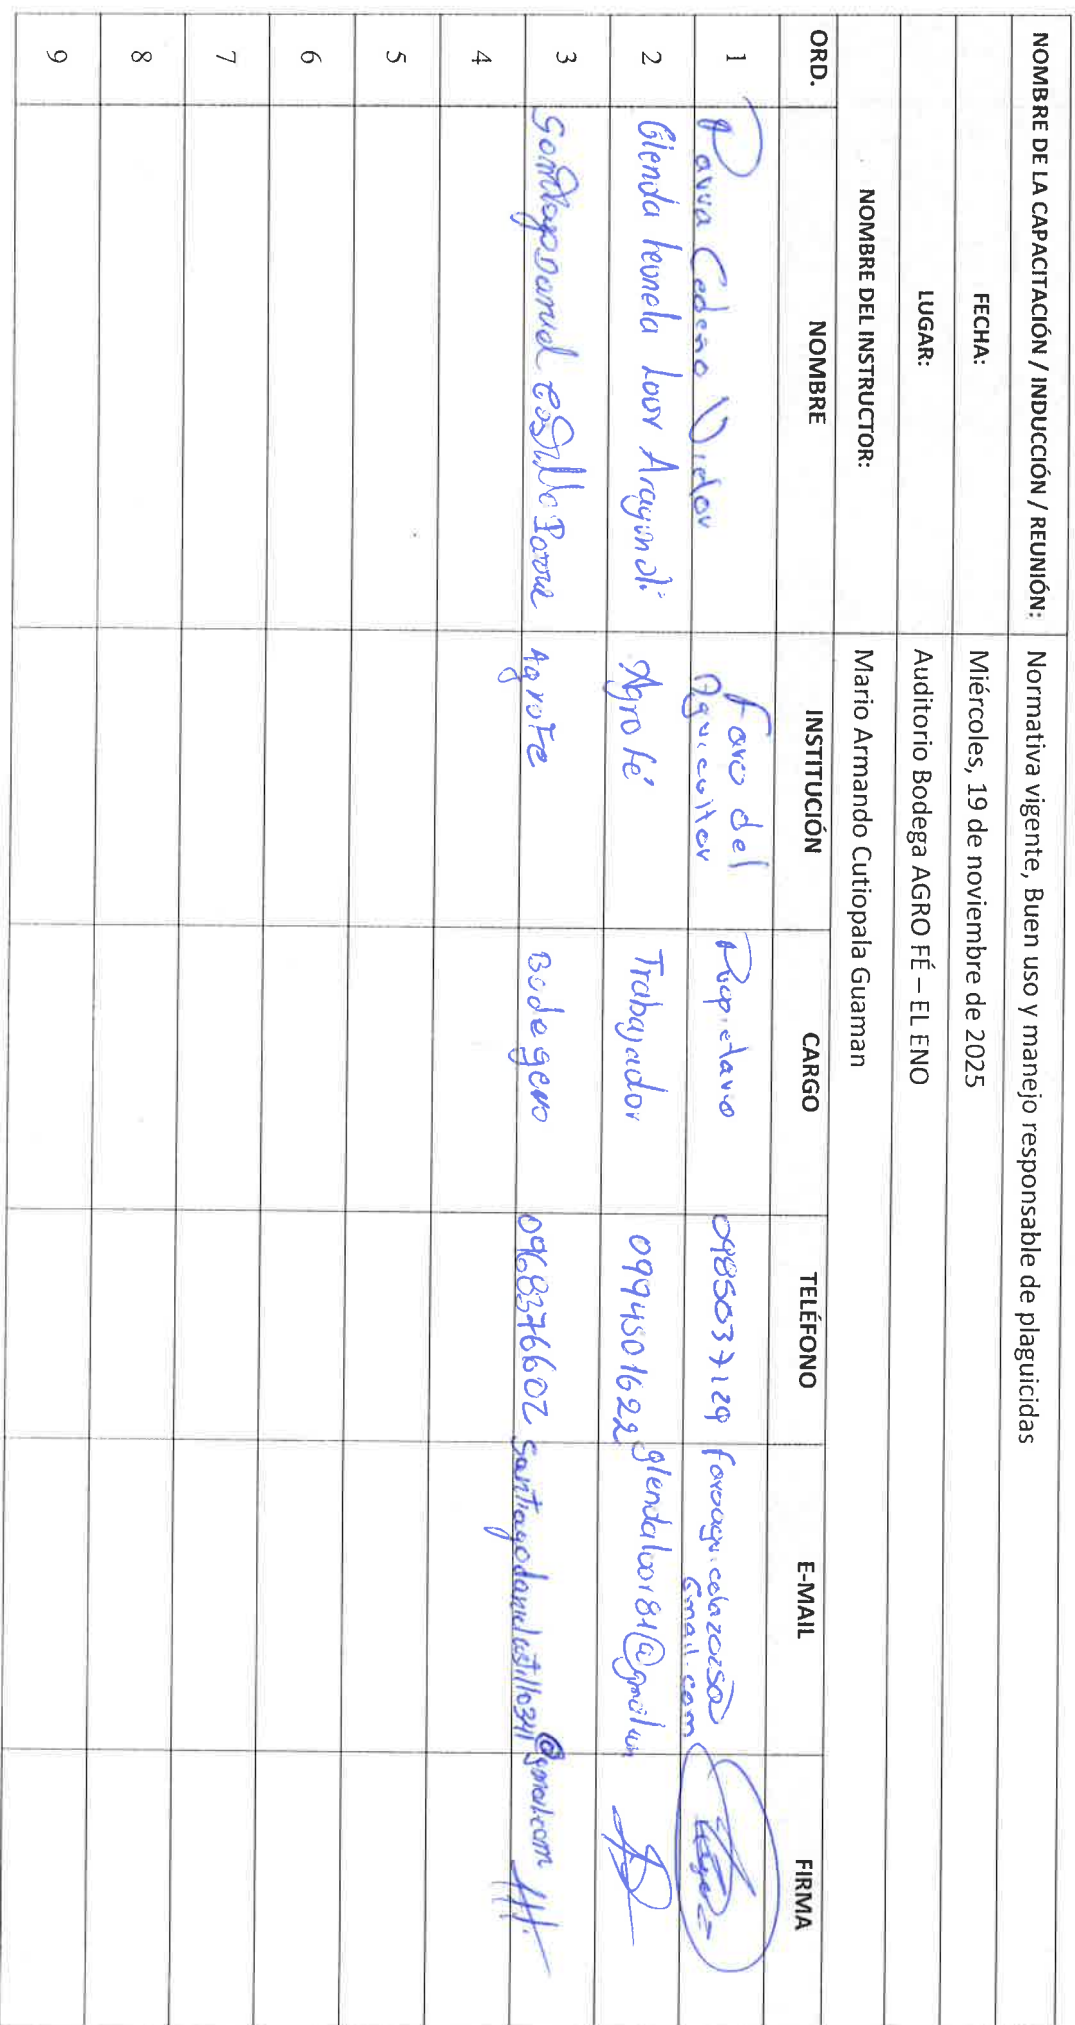 NOMBRE DE LA CAPACITACIÓN / INDUCCIÓN / REUNIÓN: Normativa vigente, Buen uso y manejo responsable de plaguicidas
FECHA: Miércoles, 19 de noviembre de 2025
LUGAR: Auditorio Bodega AGRO FÉ – EL ENO
NOMBRE DEL INSTRUCTOR: Mario Armando Cutiopala Guaman
ORD. NOMBRE INSTITUCIÓN CARGO TELÉFONO E-MAIL FIRMA
1 Parra Cedeño Faro del Agricultor Propietario 0985037129 Gmail.com
2 Glenda Loor Agro fé Trabajador 0994501622 glendaloor81@gmail.com
3 Castillo Parra AgroFe Bodegero 0968376602 santiagodanielcastillo341@gmail.com
4
5
6
7
8
9